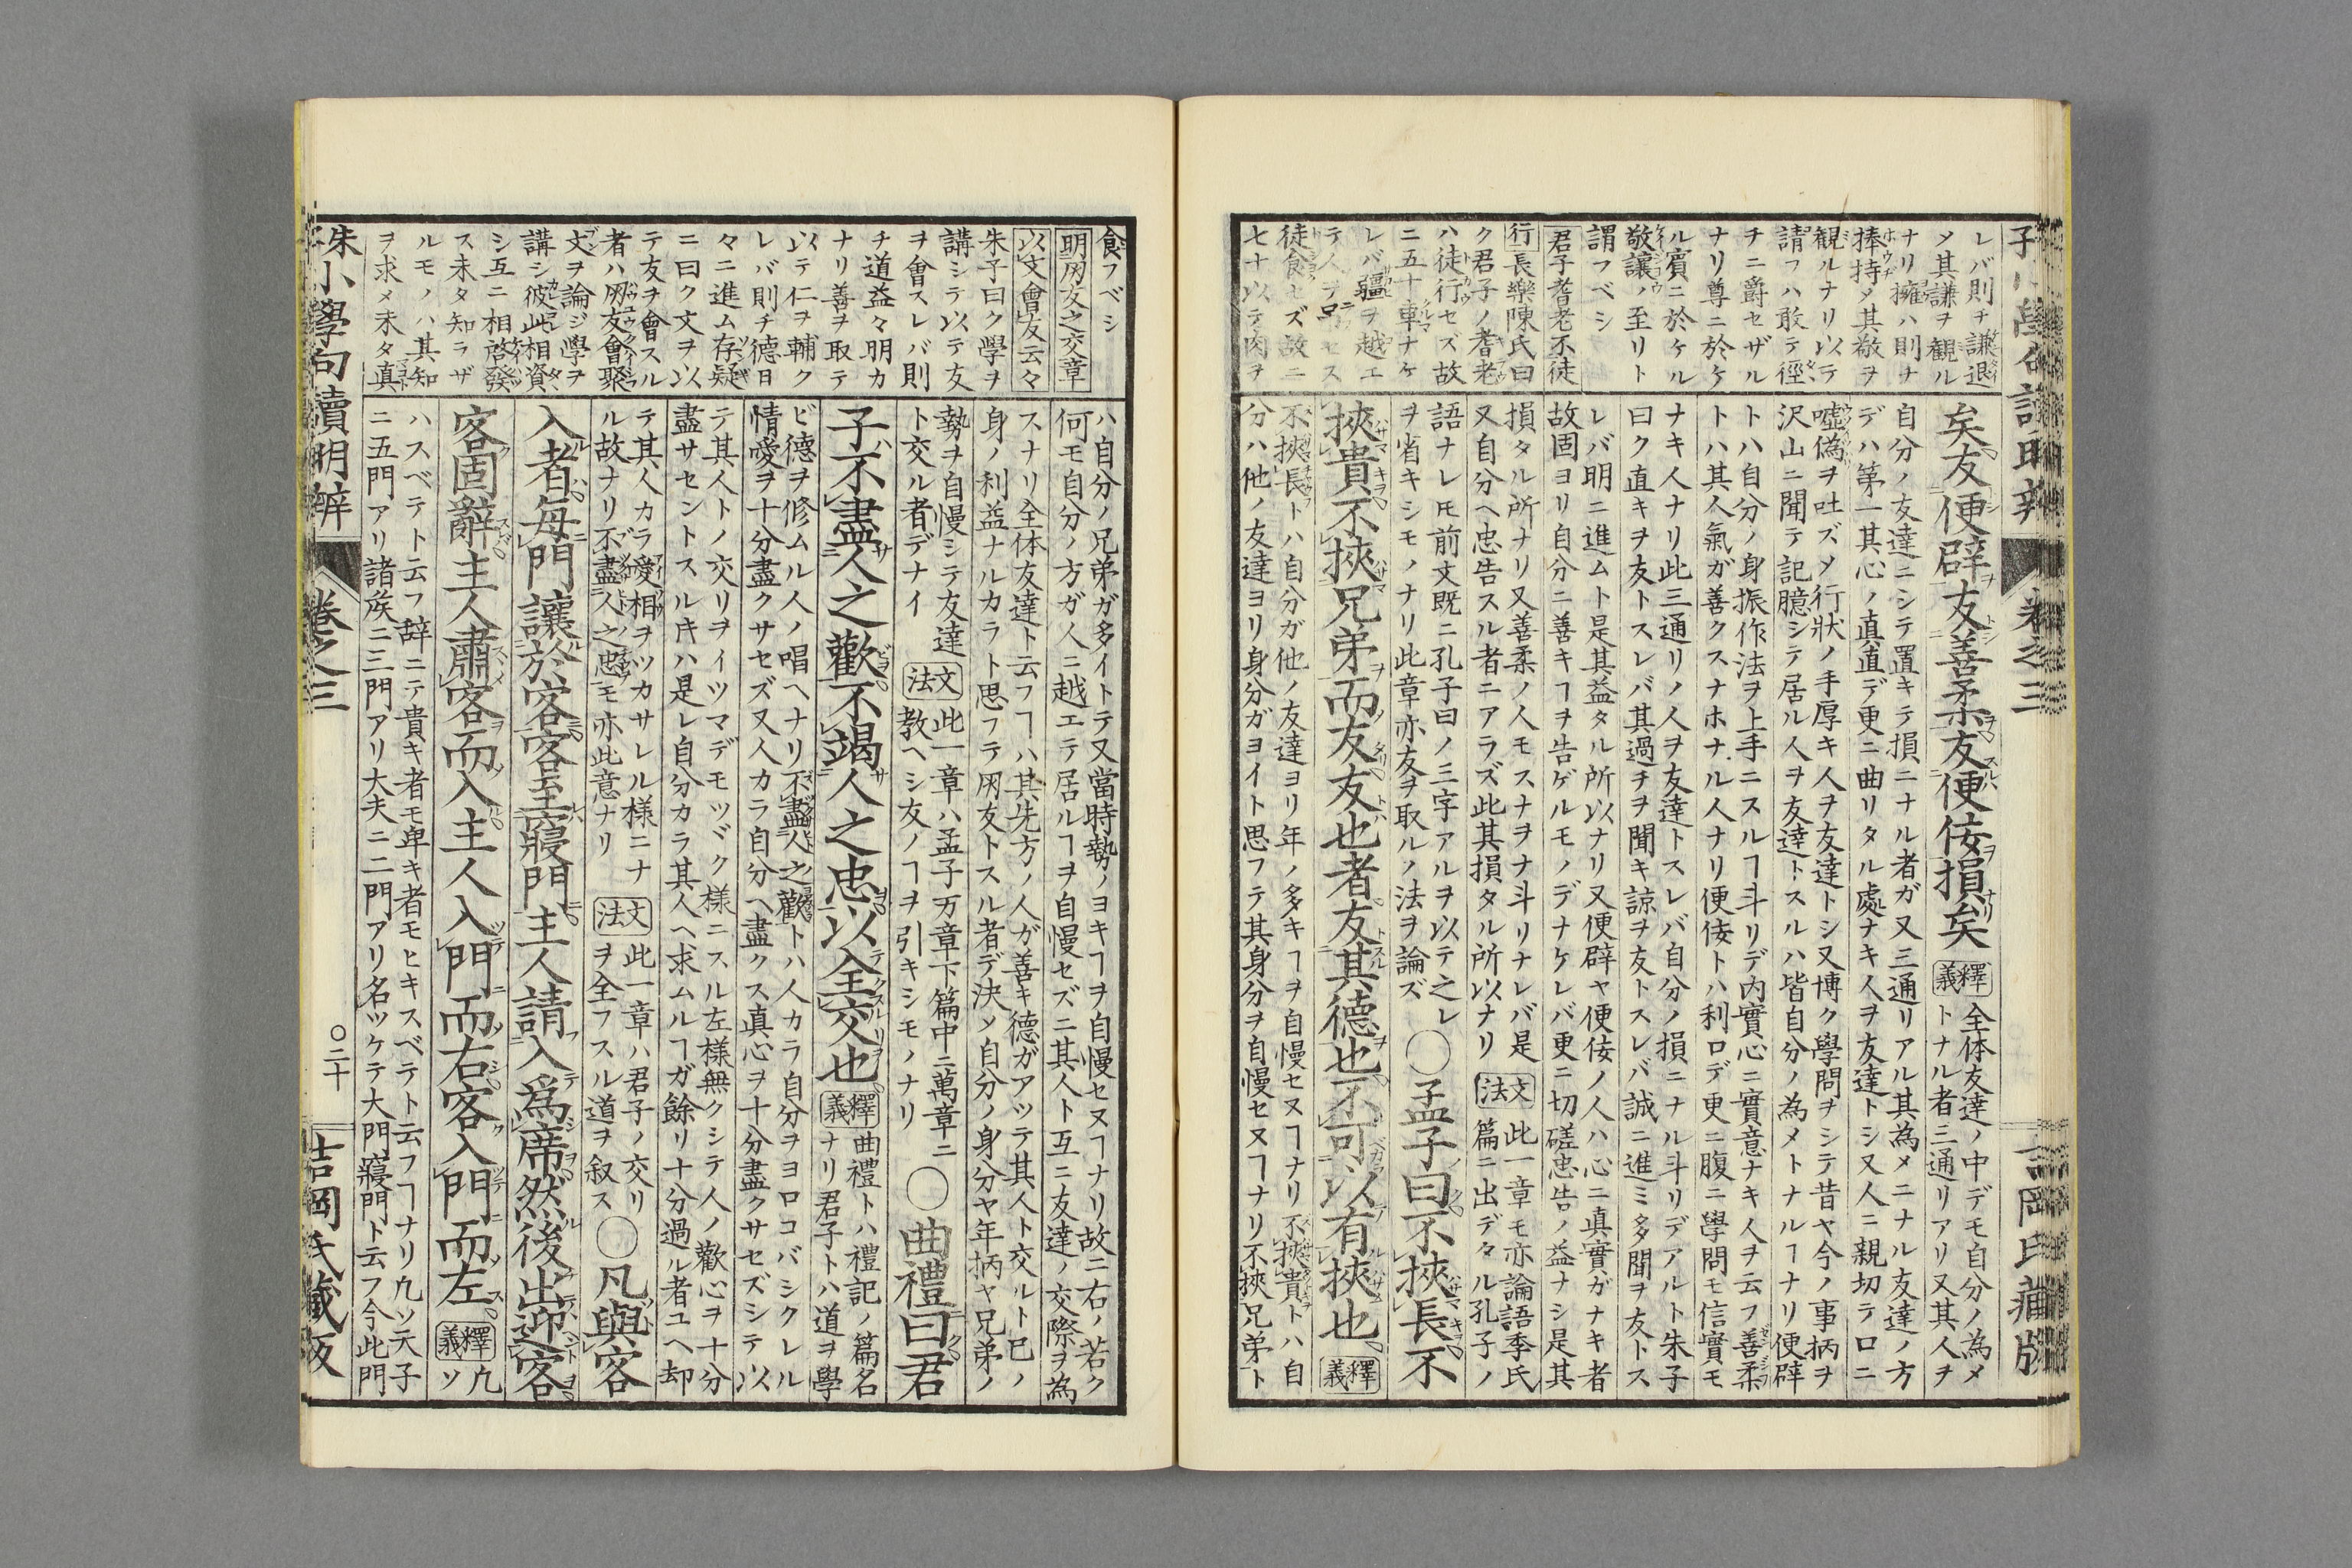 レバ則チ謙退
メ其謙ヲ観ル
ナリ擁ハ則ナ
捧持メ其敬ヲ
観ルナリ以テ
請フハ敢テ徑
ヲチニ爵セザル
ナリ尊ニ於ケ
ル賓ニ於ケル
敬讓ノ至リト
謂フベシ
君子耆老不徒
行 長樂陳氏曰
ク君子ノ耆老
ハ徒行セズ故
ニ五十車ナケ
レバ疆ヲ越エ
テ人ヲセス
徒食セズ故ニ
七十以テ肉ヲ
矣友便辟友善柔友便佞損矣 釋義 全体友達ノ中デモ自分ノ為メ
トナル者三通リアリ又其人ヲ
自分ノ友達ニシテ置キテ損ニナル者ガ又三通リアル其為メニナル友達ノ方
デハ第一其心ノ真直デ更ニ曲リタル處ナキ人ヲ友達トシ又人ニ親切テロニ
嘘偽ヲ吐ズメ行狀ノ手厚キ人ヲ友達トシ又博ク學問ヲシテ昔ヤ今ノ事柄ヲ
沢山ニ聞テ記臆シテ居ル人ヲ友達トスルハ皆自分ノ為メトナルヿナリ便辟
トハ自分ノ身振作法ヲ上手ニスルヿ斗リデ内實心ニ實意ナキ人ヲ云フ善柔
トハ其人氣ガ善クスナホナル人ナリ便佞トハ利口デ更ニ腹ニ學問モ信實モ
ナキ人ナリ此三通リノ人ヲ友達トスレバ自分ノ損ニナル斗リデアルト朱子
曰ク直キヲ友トスレバ其過チヲ聞キ諒ヲ友トスレバ誠ニ進ミ多聞ヲ友トス
レバ明ニ進ムト是其益タル所以ナリ又便辟ヤ便佞ノ人ハ心ニ真實ガナキ者
故固ヨリ自分ニ善キヿヲ告ゲルモノデナケレバ更ニ切磋忠告ノ益ナシ是其
損タル所ナリ又善柔ノ人モスナヲナ斗リナレバ是
又自分ヘ忠告スル者ニアラズ此其損タル所以ナリ 文法 此一章モ亦論語季氏
篇ニ出デタル孔子ノ
語ナレ𪜈前文既ニ孔子曰ノ三字アルヲ以テ之レ
ヲ省キシモノナリ此章亦友ヲ取ルノ法ヲ論ズ 〇孟子曰不挾長不
挾貴不挾兄弟而友友也者友其德也不可以有挾也 釋義
不挾長トハ自分ガ他ノ友達ヨリ年ノ多キヿヲ自慢セヌヿナリ不挾貴トハ自
分ハ他ノ友達ヨリ身分ガヨイト思フテ其身分ヲ自慢セヌヿナリ不挾兄弟ト
卷之三
食フベシ
明朋友之交章
以文會友云々
朱子曰ク學ヲ
講シテ以テ友
ヲ會スレバ則
チ道益々明カ
ナリ善ヲ取テ
以テ仁ヲ輔ク
レバ則チ德日
々ニ進ム存疑
ニ曰ク文ヲ以
テ友ヲ會スル
者ハ朋友會聚
文ヲ論ジ學ヲ
講シ彼此相資
シ互ニ相啓發
ス未タ知ラザ
ルモノハ其知
ヲ求メ未タ真
ハ自分ノ兄弟ガ多イトテ又當時勢ノヨキヿヲ自慢セヌヿナリ故ニ右ノ若ク
何モ自分ノ方ガ人ニ越エテ居ルヿヲ自慢セズニ其人ト互ニ友達ノ交際ヲ為
スナリ全体友達ト云フヿハ其先方ノ人ガ善キ德ガアツテ其人ト交ルト已ノ
身ノ利益ナルカラト思フテ朋友トスル者デ決メ自分ノ身分ヤ年柄ヤ兄弟ノ
勢ヲ自慢シテ友達
ト交ル者デナイ 文法 此一章ハ孟子万章下篇中ニ萬章ニ
教ヘシ友ノヿヲ引キシモノナリ 〇曲禮曰君
子不盡人之歡不竭人之忠以全交也 釋義 曲禮トハ禮記ノ篇名
ナリ君子トハ道ヲ學
ビ德ヲ修ムル人ノ唱ヘナリ不盡人之歡トハ人カラ自分ヲヨロコバシクレル
情噯ヲ十分盡クサセズ又人カラ自分ヘ盡クス真心ヲ十分盡クサセズシテ以
テ其人トノ交リヲイツマデモツヾク樣ニスル左樣無クシテ人ノ歡心ヲ十分
盡サセントスル𪜈ハ是レ自分カラ其人ヘ求ムルヿガ餘リ十分過ル者ユヘ却
テ其人カラ愛相ヲツカサレル樣ニナ
ル故ナリ不盡人之忠モ亦此意ナリ 文法 此一章ハ君子ノ交リ
ヲ全フスル道ヲ叙ス 〇凡與客
入者每門讓於客客至寢門主人請入爲席然後出迎客
客固辭主人肅客而入主人入門而右客入門而左 釋義 凢ソ
ハスベテト云フ辞ニテ貴キ者モ卑キ者モヒキスベテト云フヿナリ九ツ天子
ニ五門アリ諸矦ニ三門アリ大夫ニ二門アリ名ツケテ大門寢門ト云フ今此門
小學句讀明辨 卷之三 〇二十 吉岡氏藏版